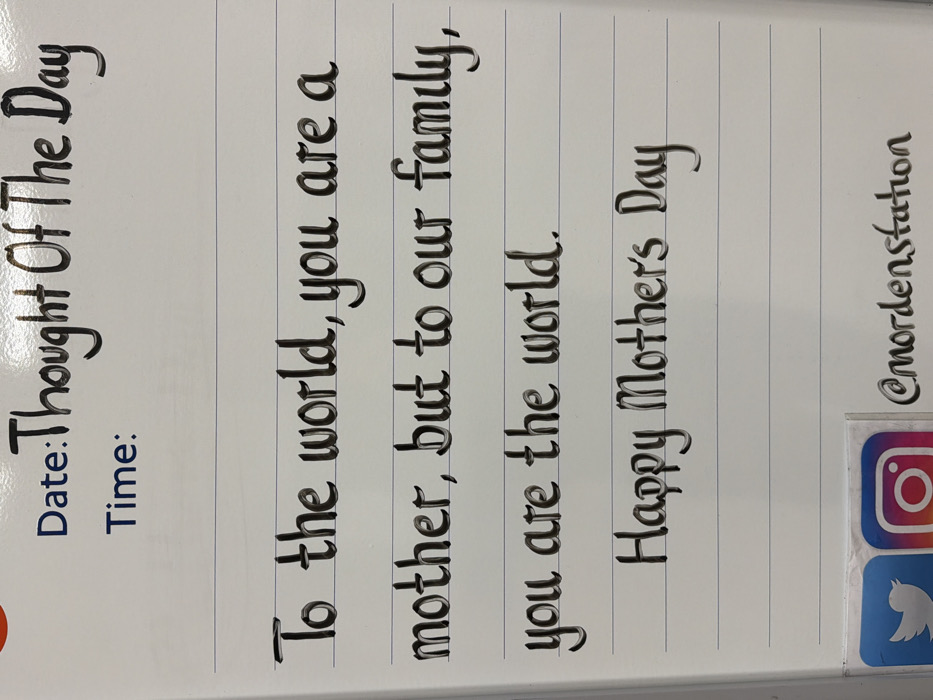 Date: Thought Of The Day
Time:
To the world, you are a
mother, but to our family,
you are the world.
Happy Mother's Day
@mordenstation